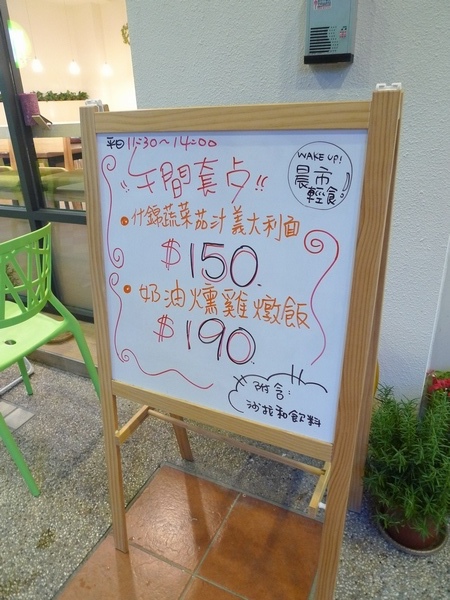 平日 11:30~14:00
!! 午間套点 !!
WAKE UP!
晨市
輕食
• 什錦蔬菜茄汁義大利面
$150.
• 奶油燻雞燉飯
$190.
附含:
沙拉和飲料